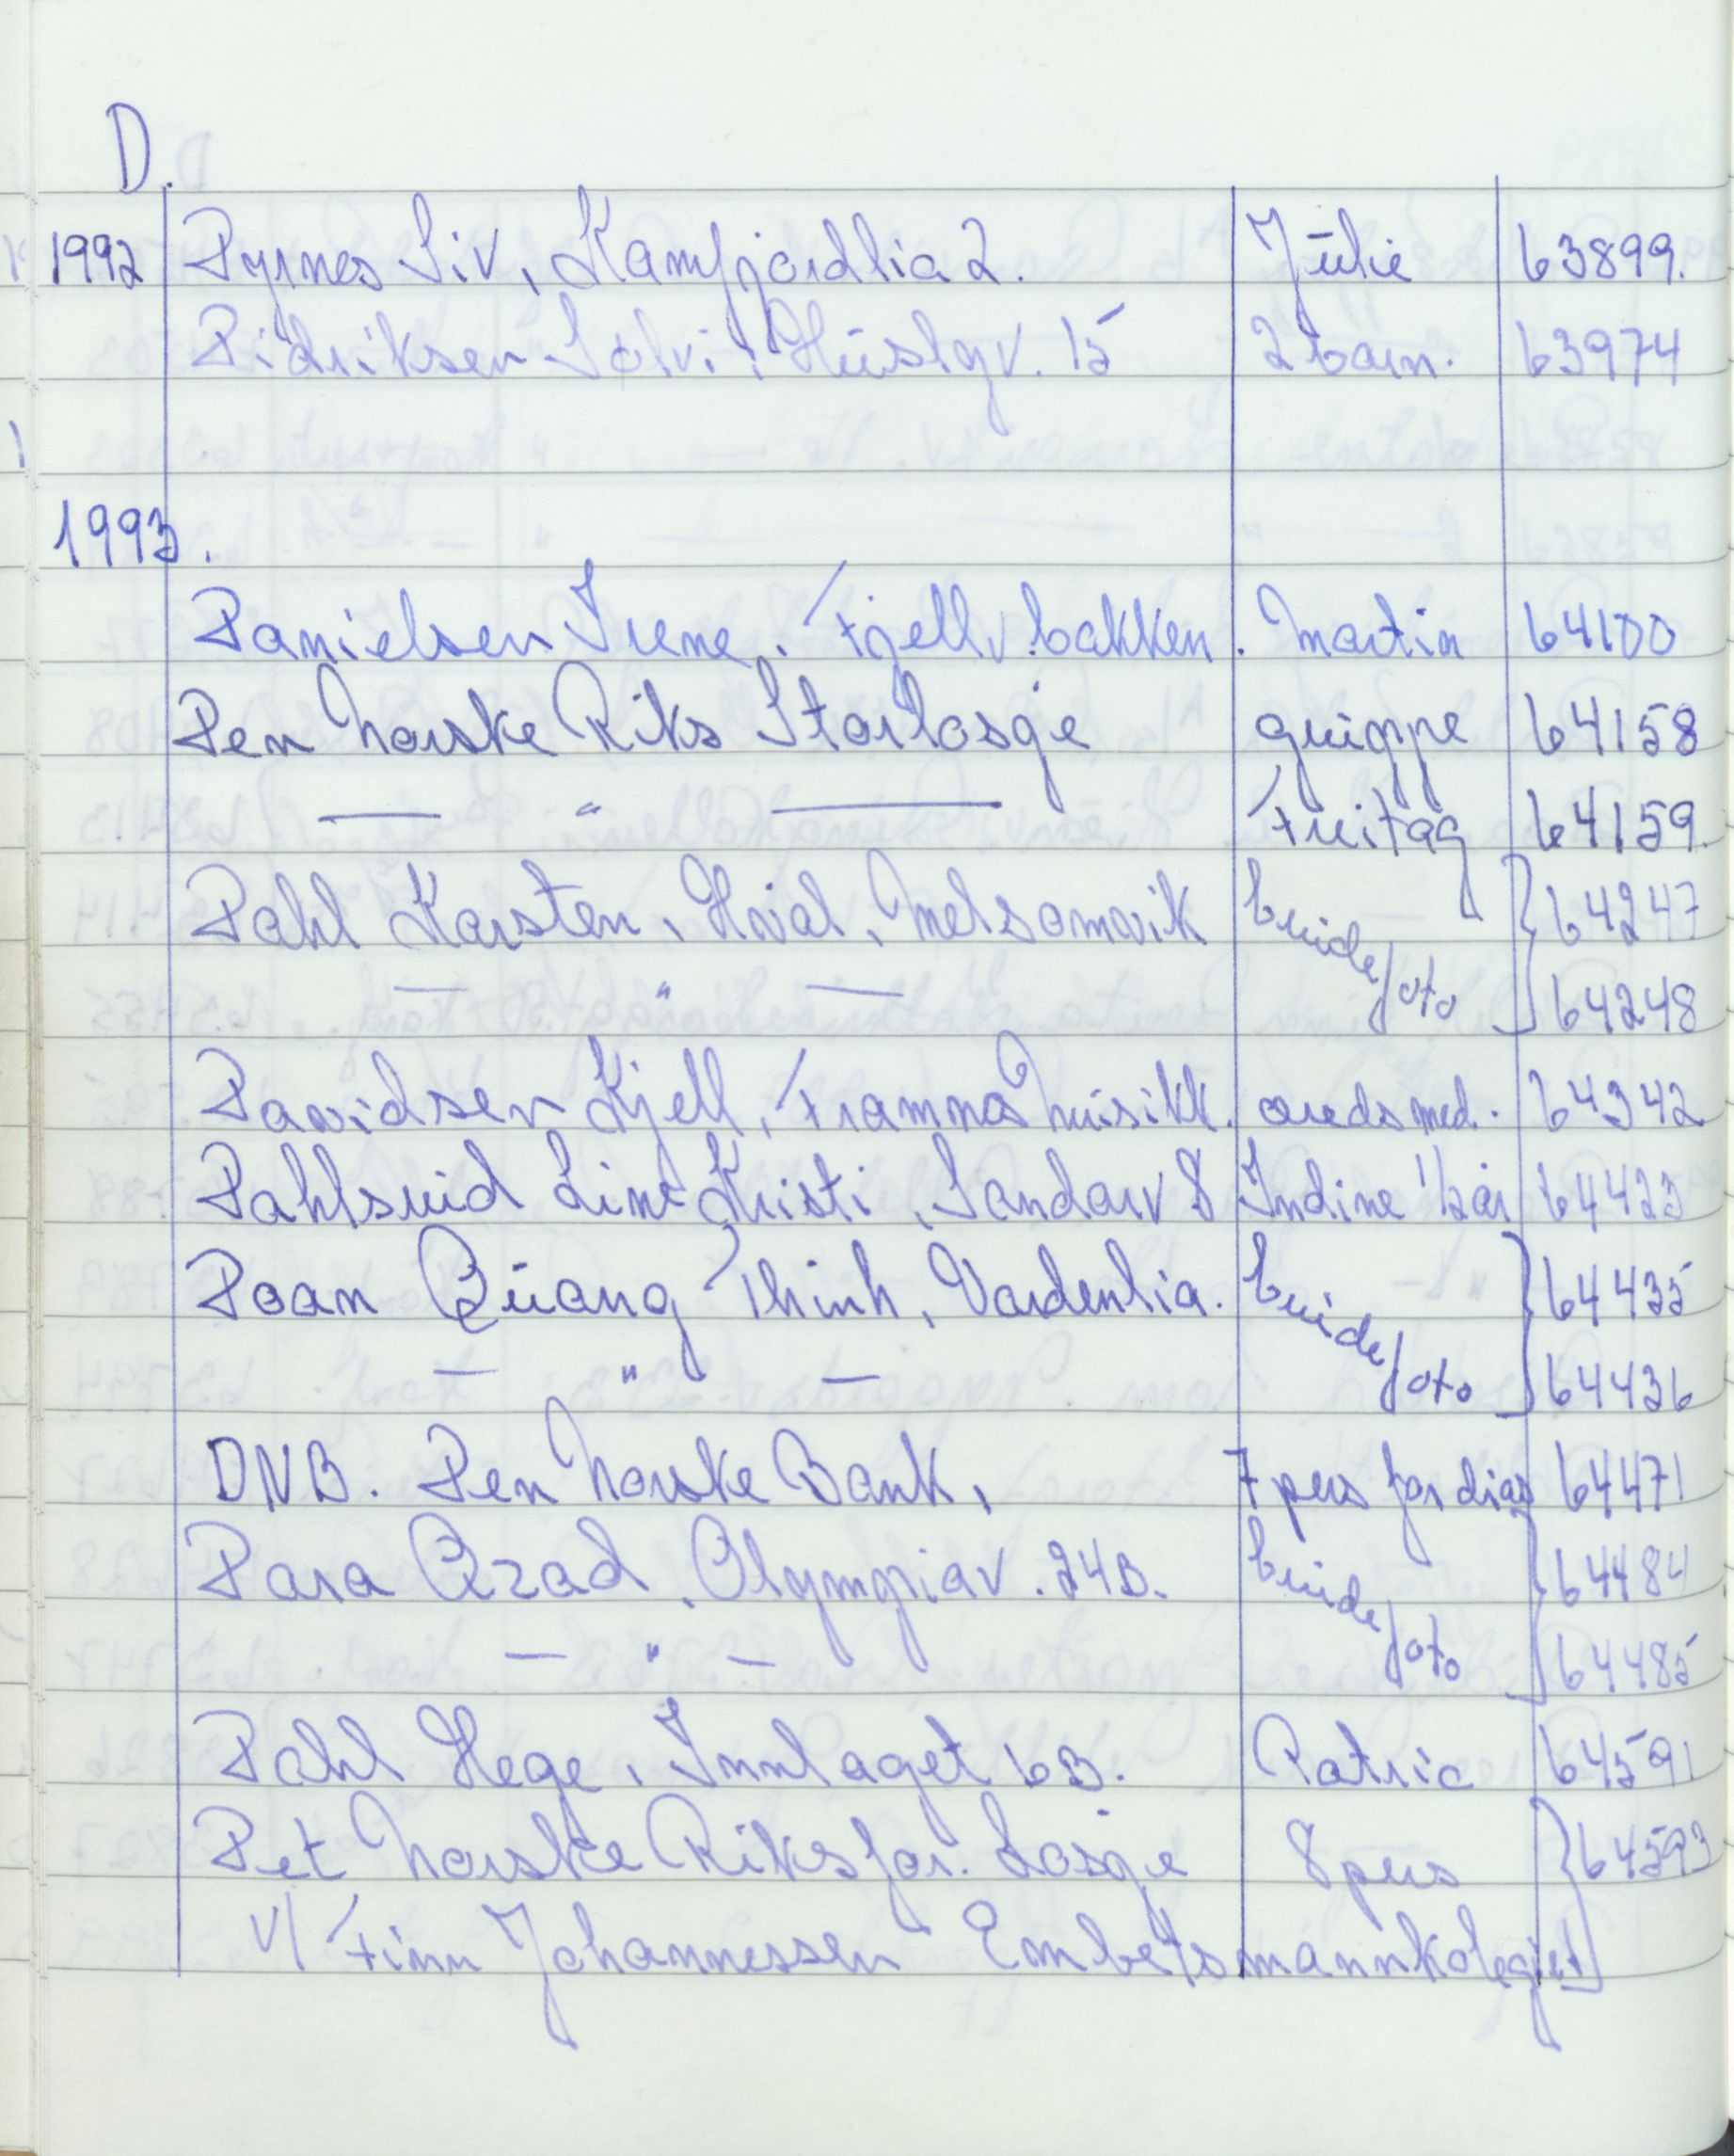 D.
1992 Dyrnes Siv, Kamfjordlia 2. Julie 63899.
Didriksen Sølvi, Huslgv. 15 2 barn. 63974
1993.
Danielsen Irene, Fjellv.bakken. Martin 64100
Den Norske Riks Storlosje gruppe 64158
— " — Fritag 64159.
Dahl Karsten, Hval, Melsomvik brudefoto 64247
— " — 64248
Davidsen Kjell, Framnæs Musikk. æredsmed. 64342
Dahlsrud Line Kristi, Sandarv 8 Indine 1/2 år 64423
Doan Quang Thinh, Vardenlia. brudefoto 64435
— " — 64436
DNB. Den Norske Bank, 7 pers for dias 64471
Dara Azad, Olympiav. 24B. brudefoto 64484
— " — 64485
Dahl Hege, Innlaget 6B. Patric 64591
Det Norske Riksfor. Losje 8 pers 64593
v/ Finn Johannessen Embetsmannkolegiet